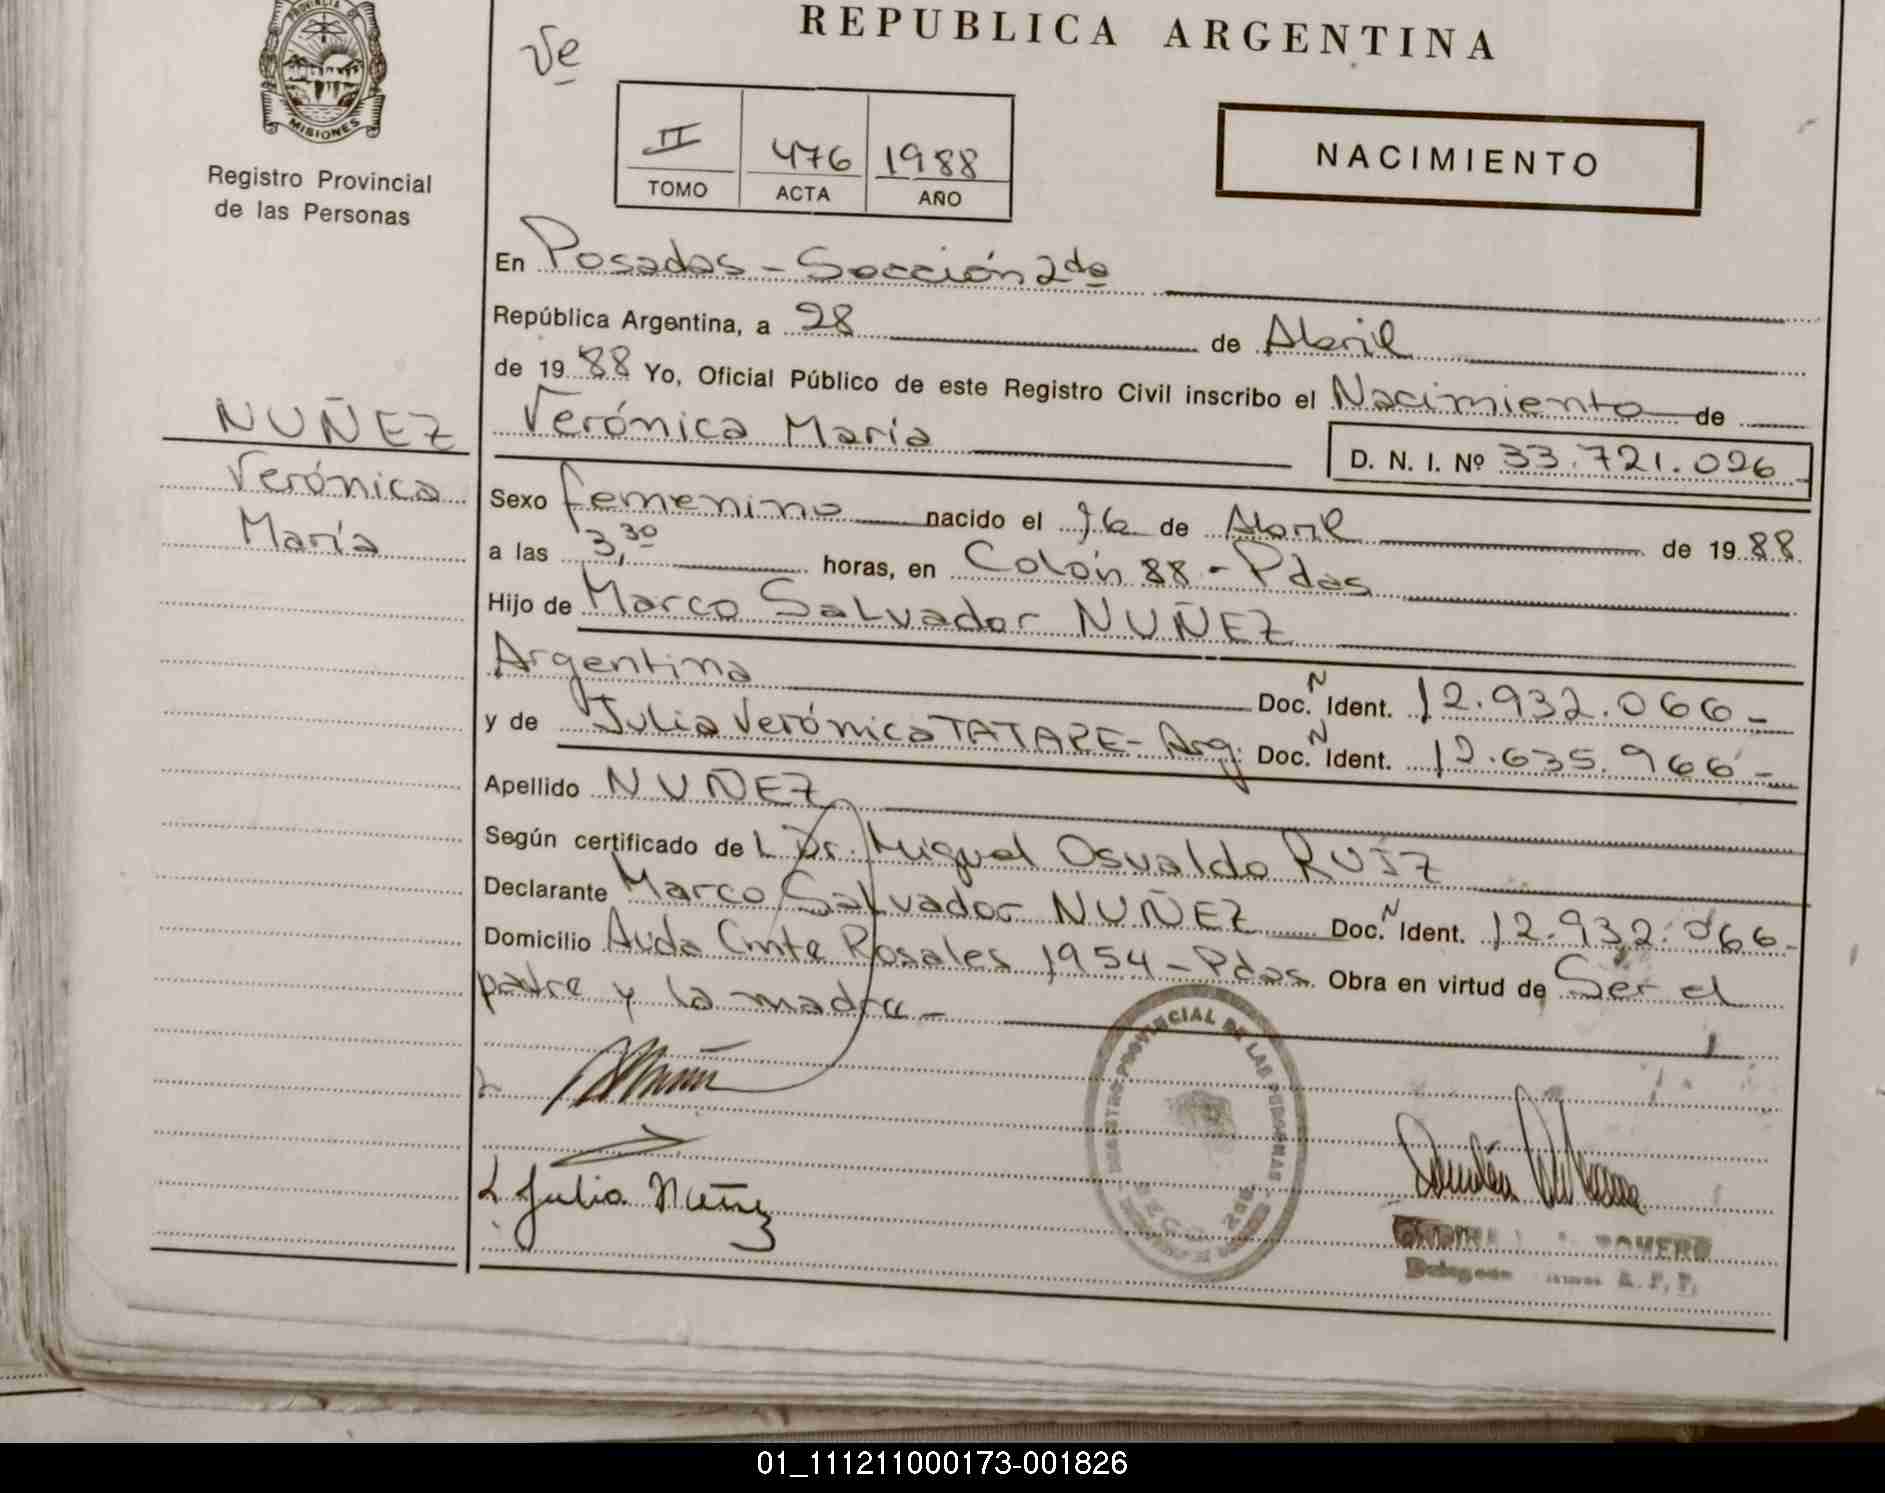 REPUBLICA ARGENTINA
PROVINCIA DE
MISIONES
Registro Provincial
de las Personas
Ve
II 476 1988
TOMO ACTA AÑO
NACIMIENTO
En Posadas - Sección 2da
República Argentina, a 28 de Abril
de 1988 Yo, Oficial Público de este Registro Civil inscribo el Nacimiento de
NUÑEZ
Verónica
María
Verónica María
D. N. I. Nº 33.721.026
Sexo femenino nacido el 16 de Abril de 1988
a las 3,30 horas, en Colón 88 - Pdas
Hijo de Marco Salvador NUÑEZ
Argentina Doc. N Ident. 12.932.066-
y de Julia Verónica TATARE - Arg. Doc. N Ident. 12.635.966-
Apellido NUÑEZ
Según certificado de L Dr. Miguel Osvaldo RUIZ
Declarante Marco Salvador NUÑEZ Doc. N Ident. 12.932.066-
Domicilio Avda Cmte Rosales 1954 - Pdas. Obra en virtud de Ser el
padre y la madre -
PROVINCIAL DE LAS PERSONAS
Julia Nuñez
ROMERO
01_111211000173-001826